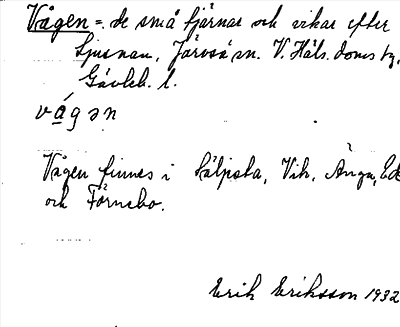 Vågen = de små fjärnar och vikar efter
Ljusnan, Järvsö sn. V. Häls. doms by.
Gävleb. l.
vágən
Vågen finnes i Säljesta, Vik, Änga, Ede
och Förnebo.
Erik Eriksson 1932